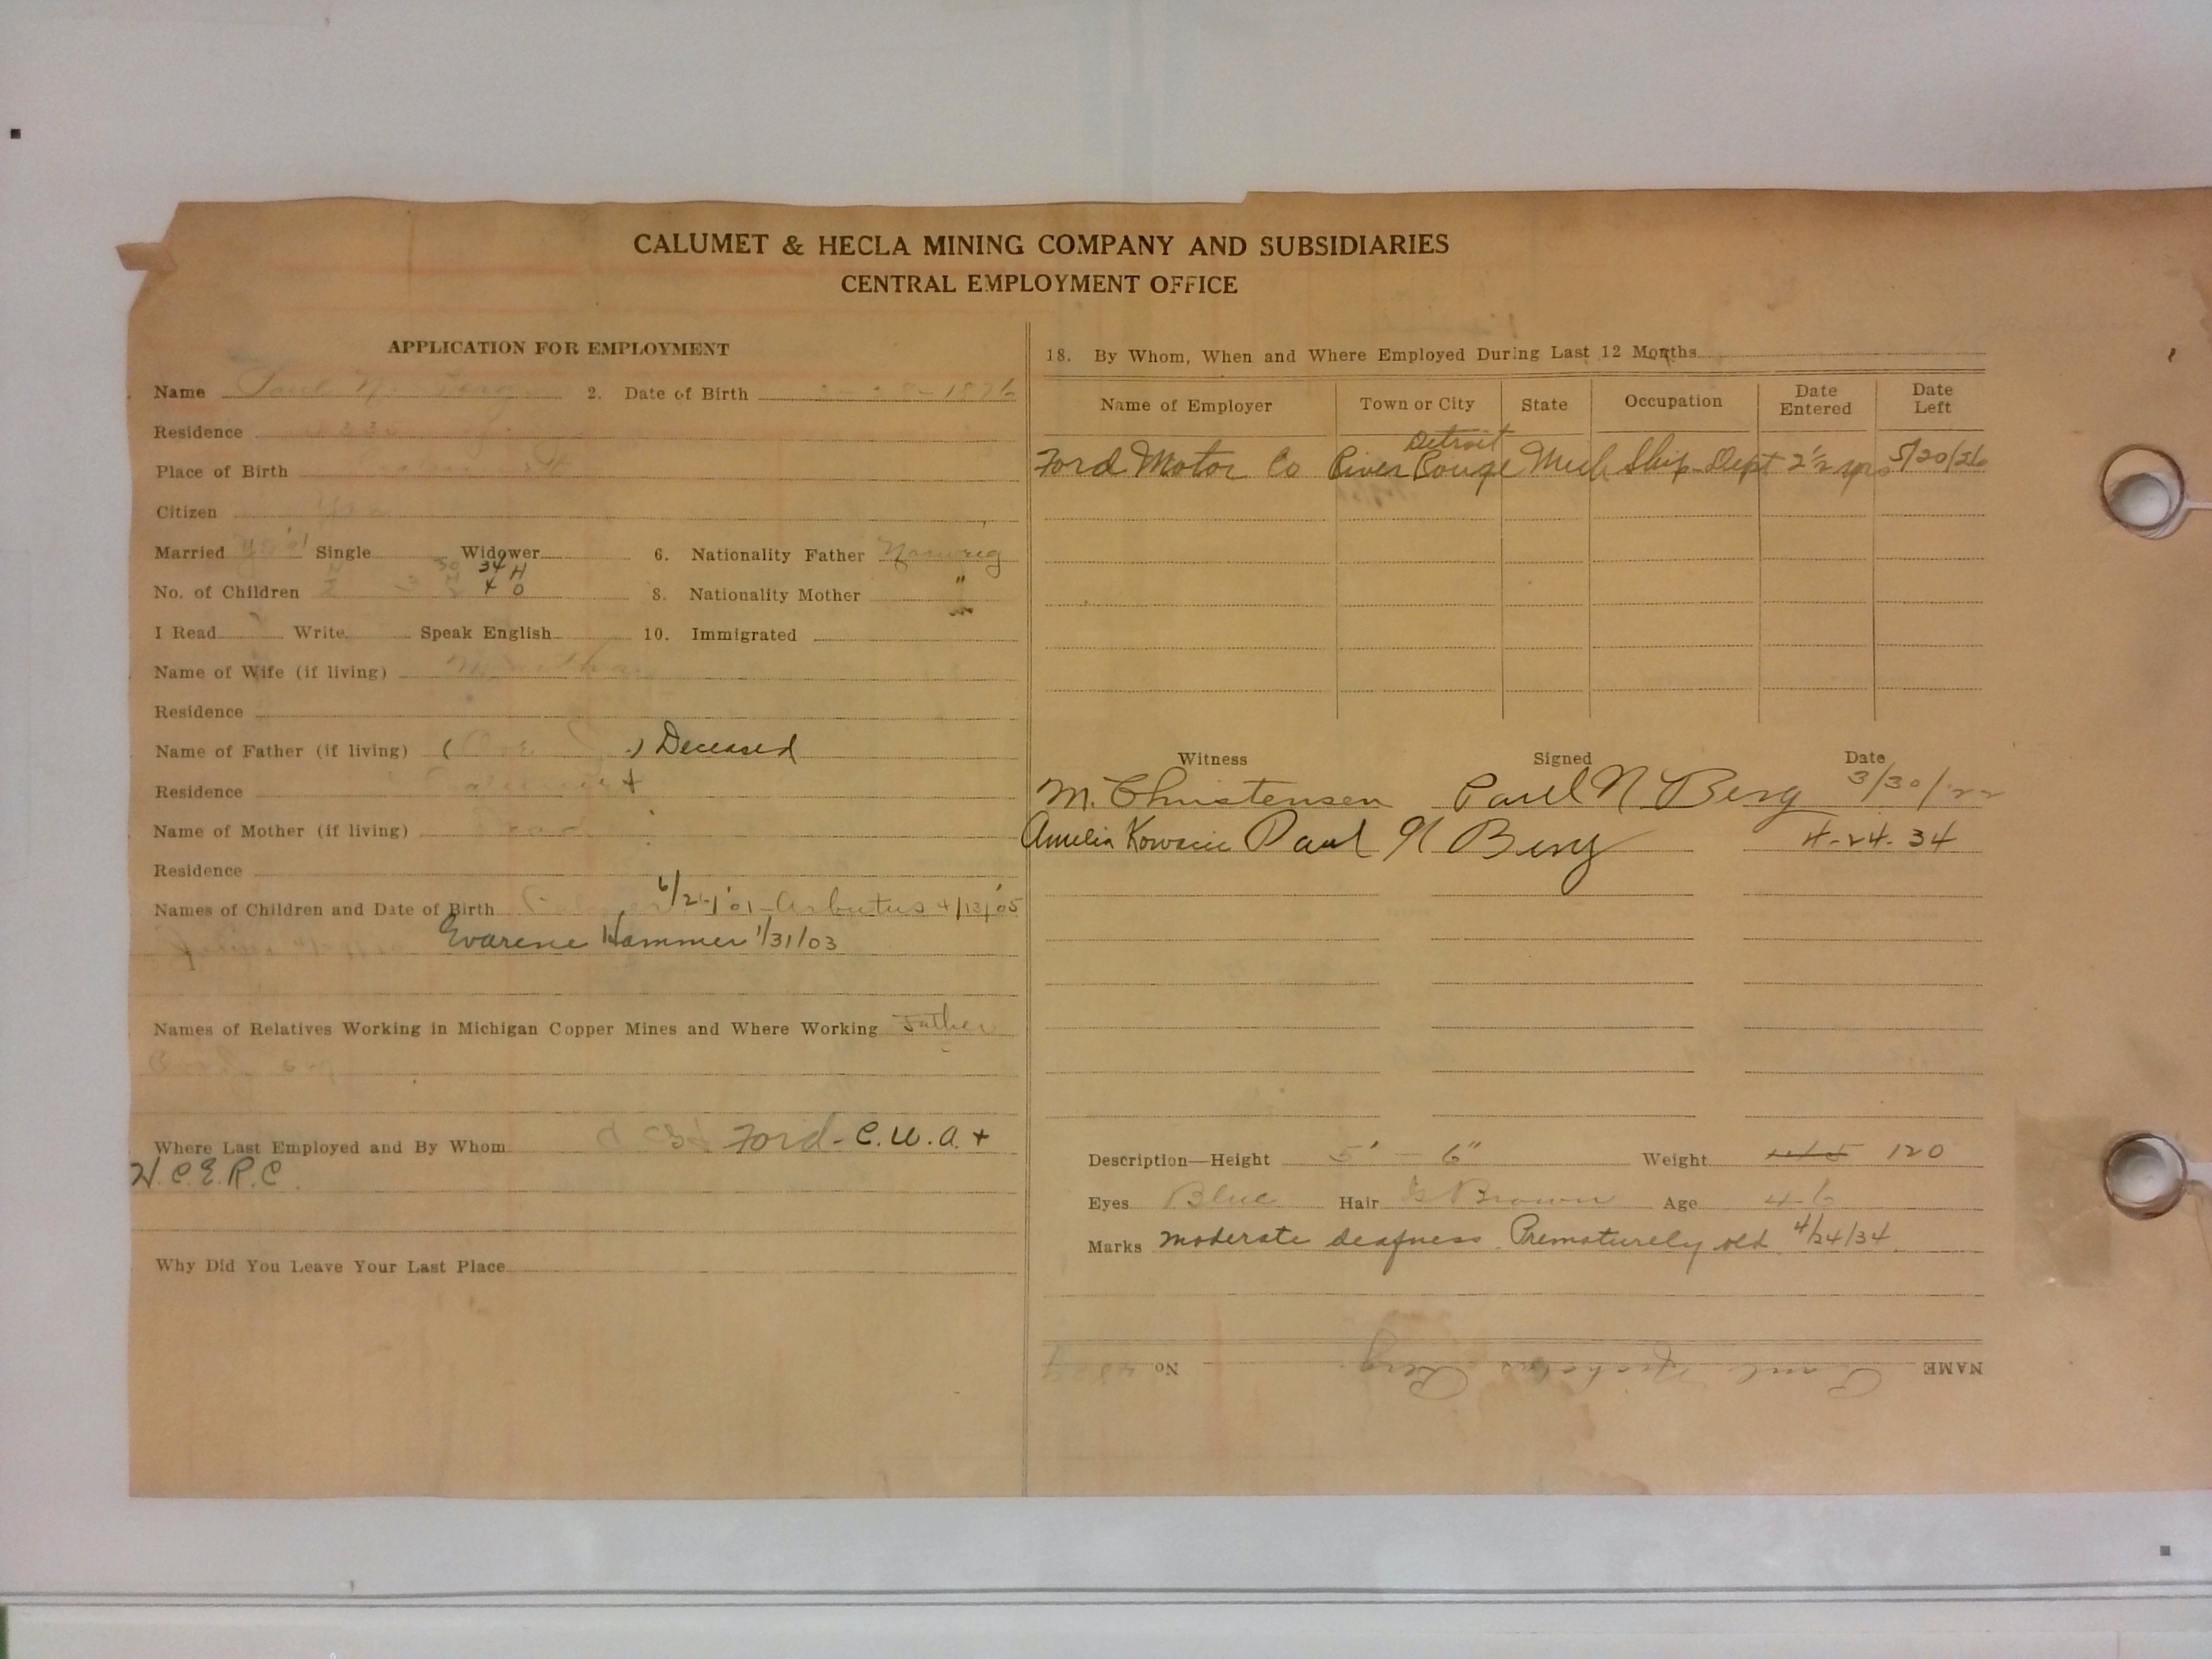 CALUMET & HECLA MINING COMPANY AND SUBSIDIARIES
CENTRAL EMPLOYMENT OFFICE
APPLICATION FOR EMPLOYMENT
Name Paul N. Berg 2. Date of Birth 1876
Residence
Place of Birth
Citizen Yes
Married Yes Single Widower 6. Nationality Father Norweg
34 H
No. of Children 4 0 8. Nationality Mother "
I Read Write Speak English 10. Immigrated
Name of Wife (if living)
Residence
Name of Father (if living) ( ) Deceased
Residence
Name of Mother (if living) Dead
Residence
Names of Children and Date of Birth '01 - Arbutus 4/13/'05
Evarene Hammer 1/31/03
Names of Relatives Working in Michigan Copper Mines and Where Working Father
Where Last Employed and By Whom Ford - C.W.A. +
H.C.E.R.C.
Why Did You Leave Your Last Place
18. By Whom, When and Where Employed During Last 12 Months
Name of Employer Town or City State Occupation Date Entered Date Left
Detroit
Ford Motor Co River Rouge Mich Ship-Dept 2 1/2 yrs 5/20/26
Witness Signed Date
M. Christensen Paul N Berg 3/30/22
Amelia Paul N Berg 4-24-34
Description—Height 5' - 6" Weight 120
Eyes Blue Hair Brown Age 46
Marks moderate deafness. Prematurely old 4/24/34
NAME Paul Nicholas Berg No